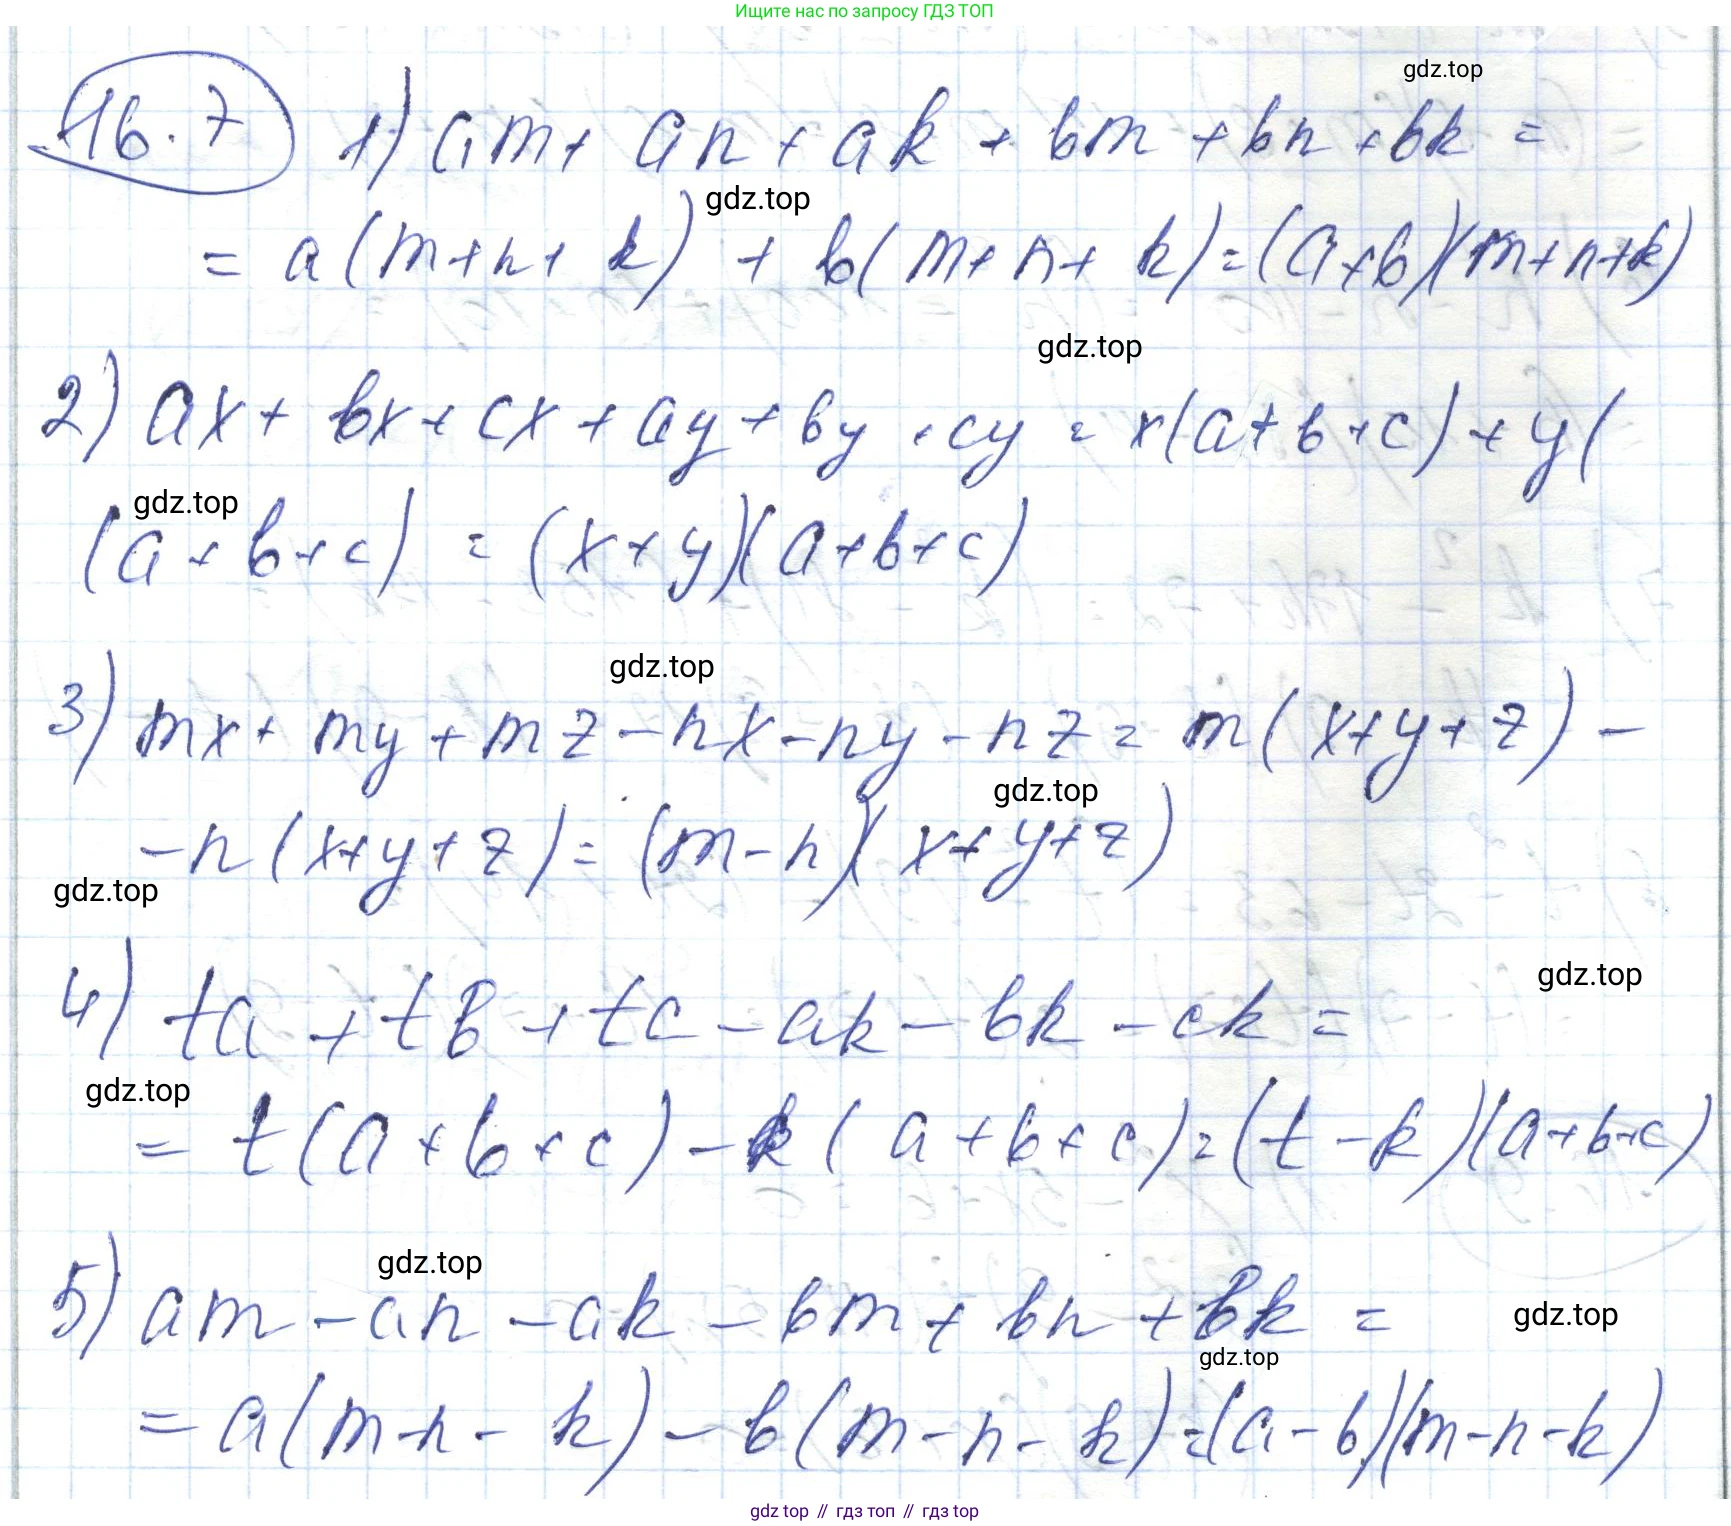 Ищите нас по запросу ГДЗ ТОП
gdz.top
16.7 1) am + an + ak + bm + bn + bk =
gdz.top
= a(m+n+k) + b(m+n+k) = (a+b)(m+n+k)
gdz.top
2) ax + bx + cx + ay + by + cy = x(a+b+c) + y(
gdz.top
(a+b+c) = (x+y)(a+b+c)
gdz.top
3) mx + my + mz - nx - ny - nz = m(x+y+z) -
gdz.top
-n(x+y+z) = (m-n)(x+y+z)
gdz.top
gdz.top
4) ta + tb + tc - ak - bk - ck =
gdz.top
= t(a+b+c) - k(a+b+c) = (t-k)(a+b+c)
gdz.top
5) am - an - ak - bm + bn + bk =
gdz.top
gdz.top
= a(m-n-k) - b(m-n-k) = (a-b)(m-n-k)
gdz top // гдз топ // гдз top